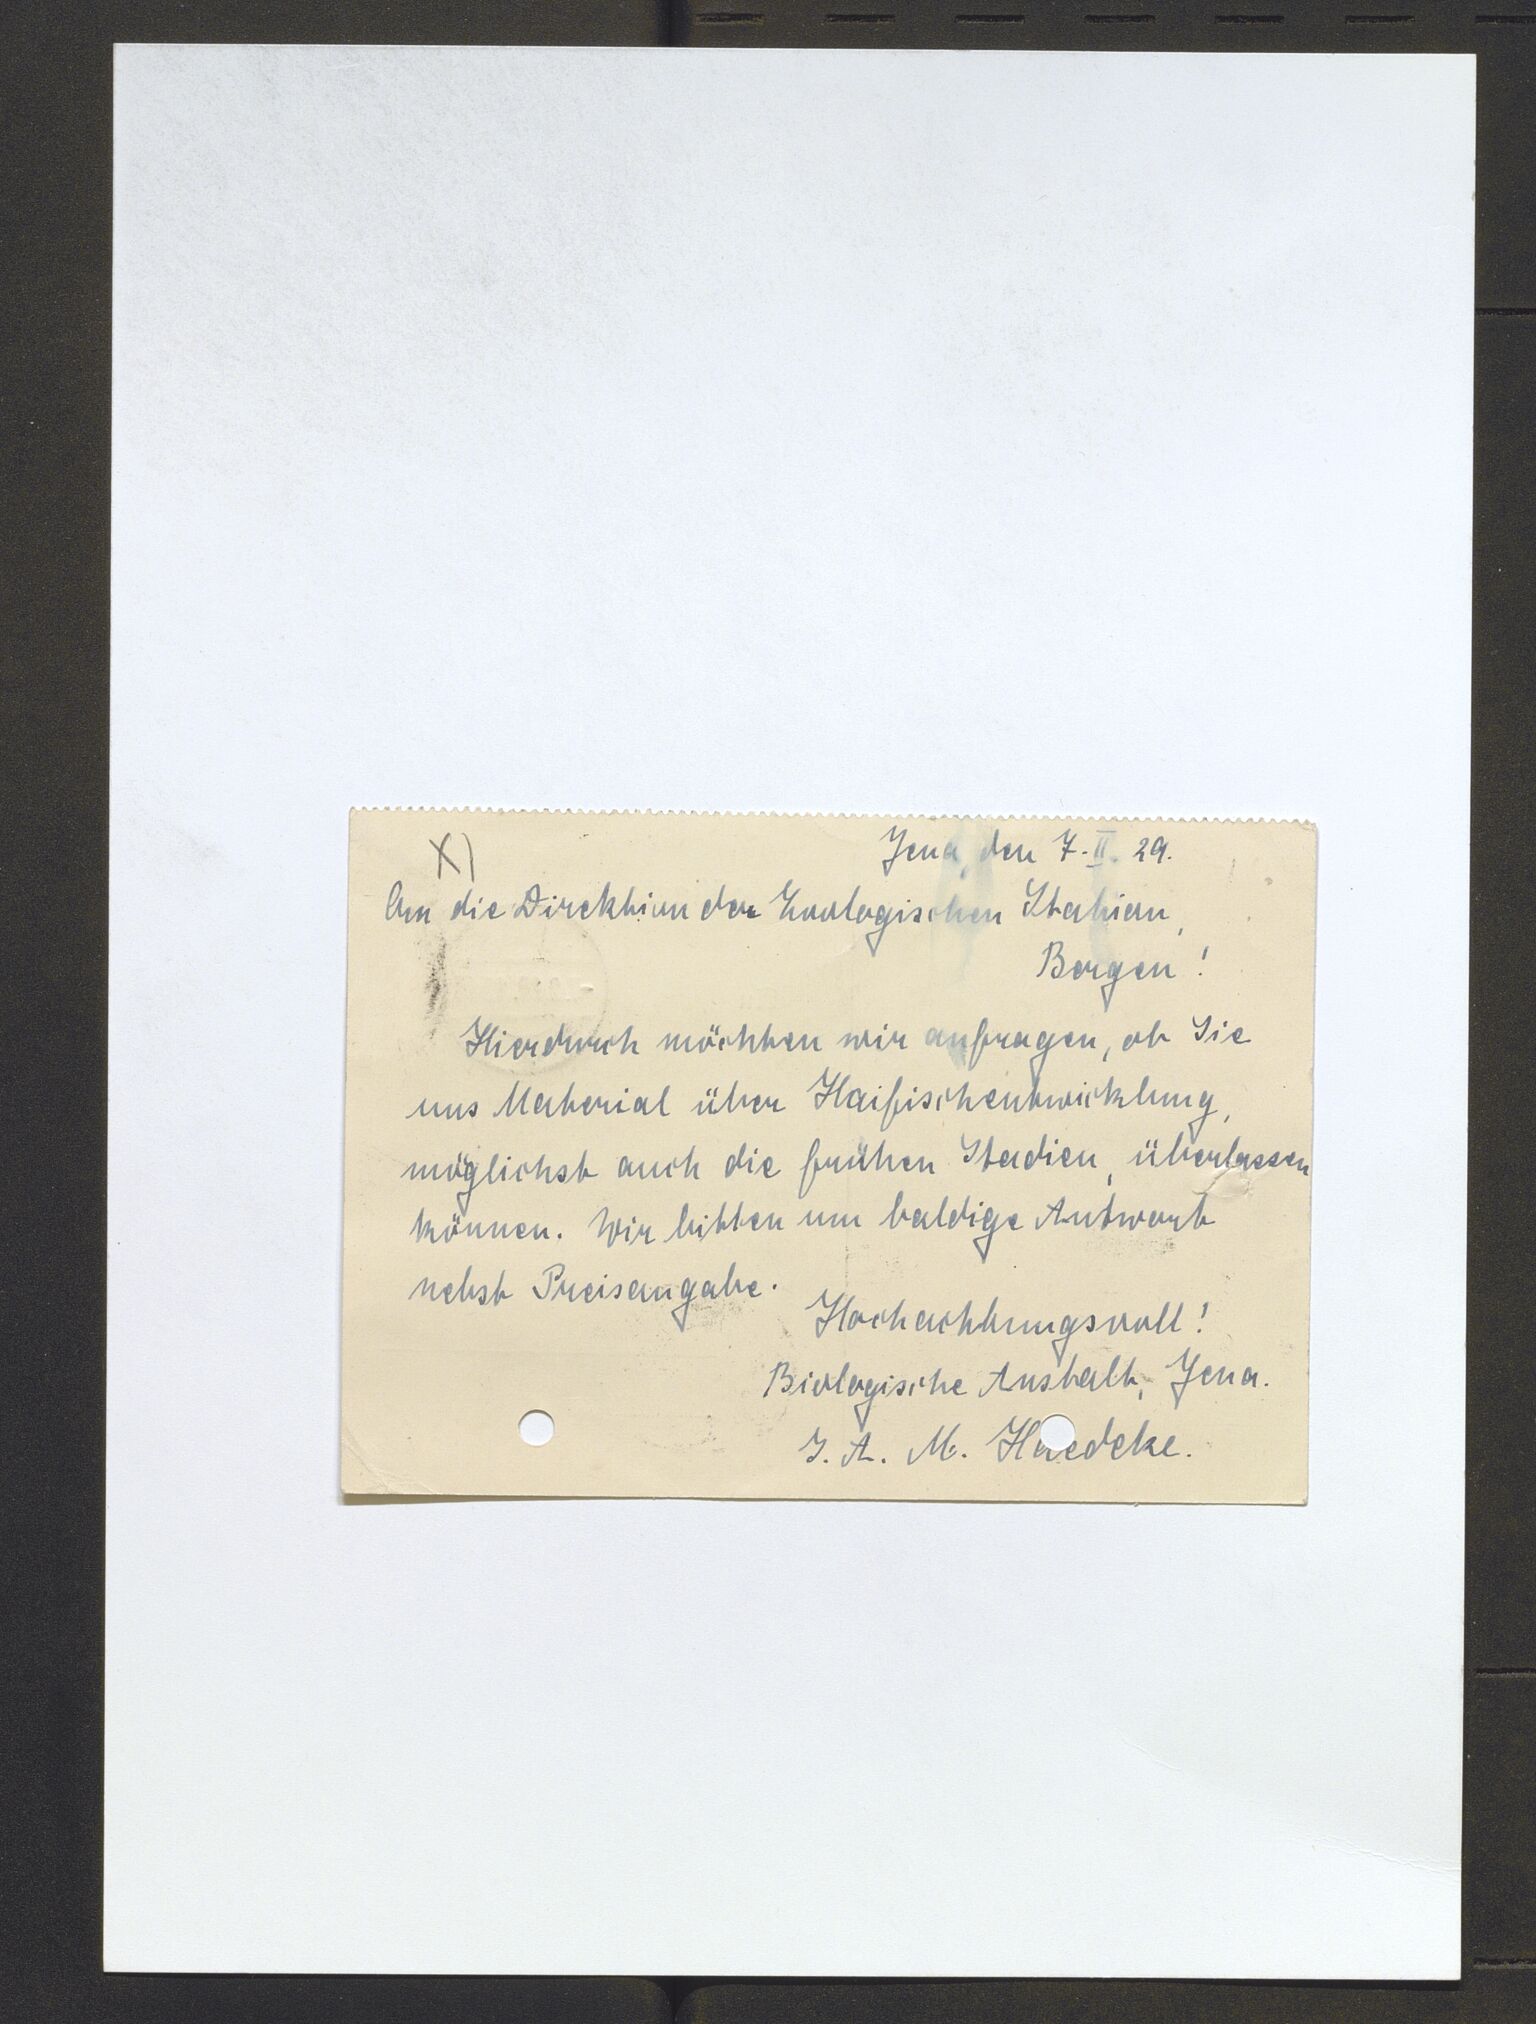 X)
Jena, den 7. II. 29.
An die Direktion der Zoologischen Station,
Bergen!
Hierdurch möchten wir anfragen, ob Sie
uns Material über Haifischentwicklung,
möglichst auch die frühen Stadien, überlassen
können. Wir bitten um baldige Antwort
nebst Preisangabe.
Hochachtungsvoll!
Biologische Anstalt, Jena.
I. A. M. Haedcke.